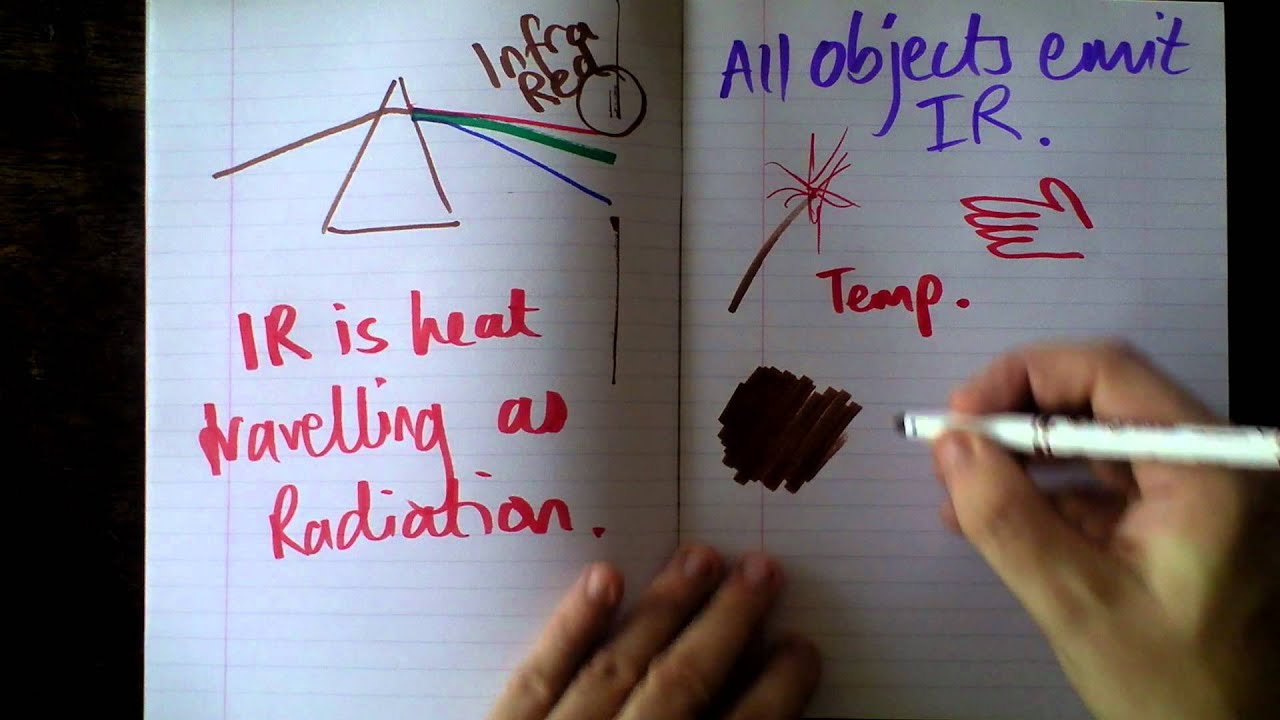 Infra
Red
IR is heat
travelling as
Radiation.
All objects emit
IR.
Temp.